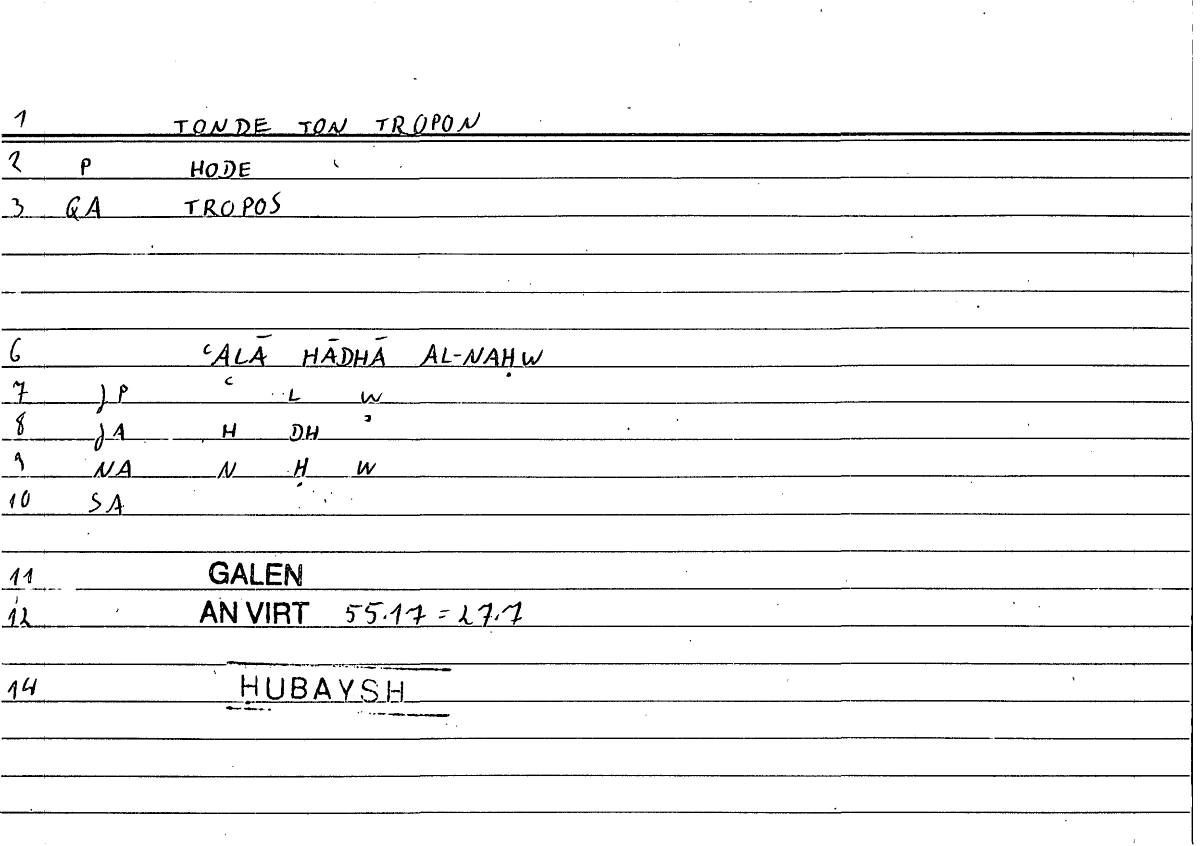 1 TONDE TON TROPON
2 P HODE
3 QA TROPOS
6 ʿALĀ HĀDHĀ AL-NAḤW
7 JP ʿ L W
8 JA H DH ʾ
9 NA N Ḥ W
10 SA
11 GALEN
12 AN VIRT 55.17 = 27.7
14 ḤUBAYSH